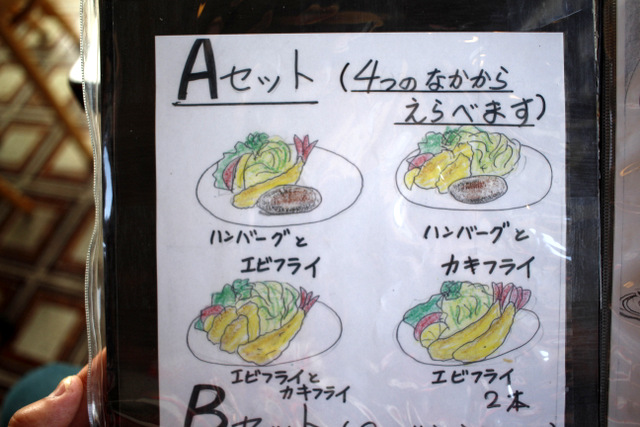 Aセット (4つのなかから
えらべます)
ハンバーグと
エビフライ
ハンバーグと
カキフライ
エビフライと
カキフライ
エビフライ
2本
Bセット